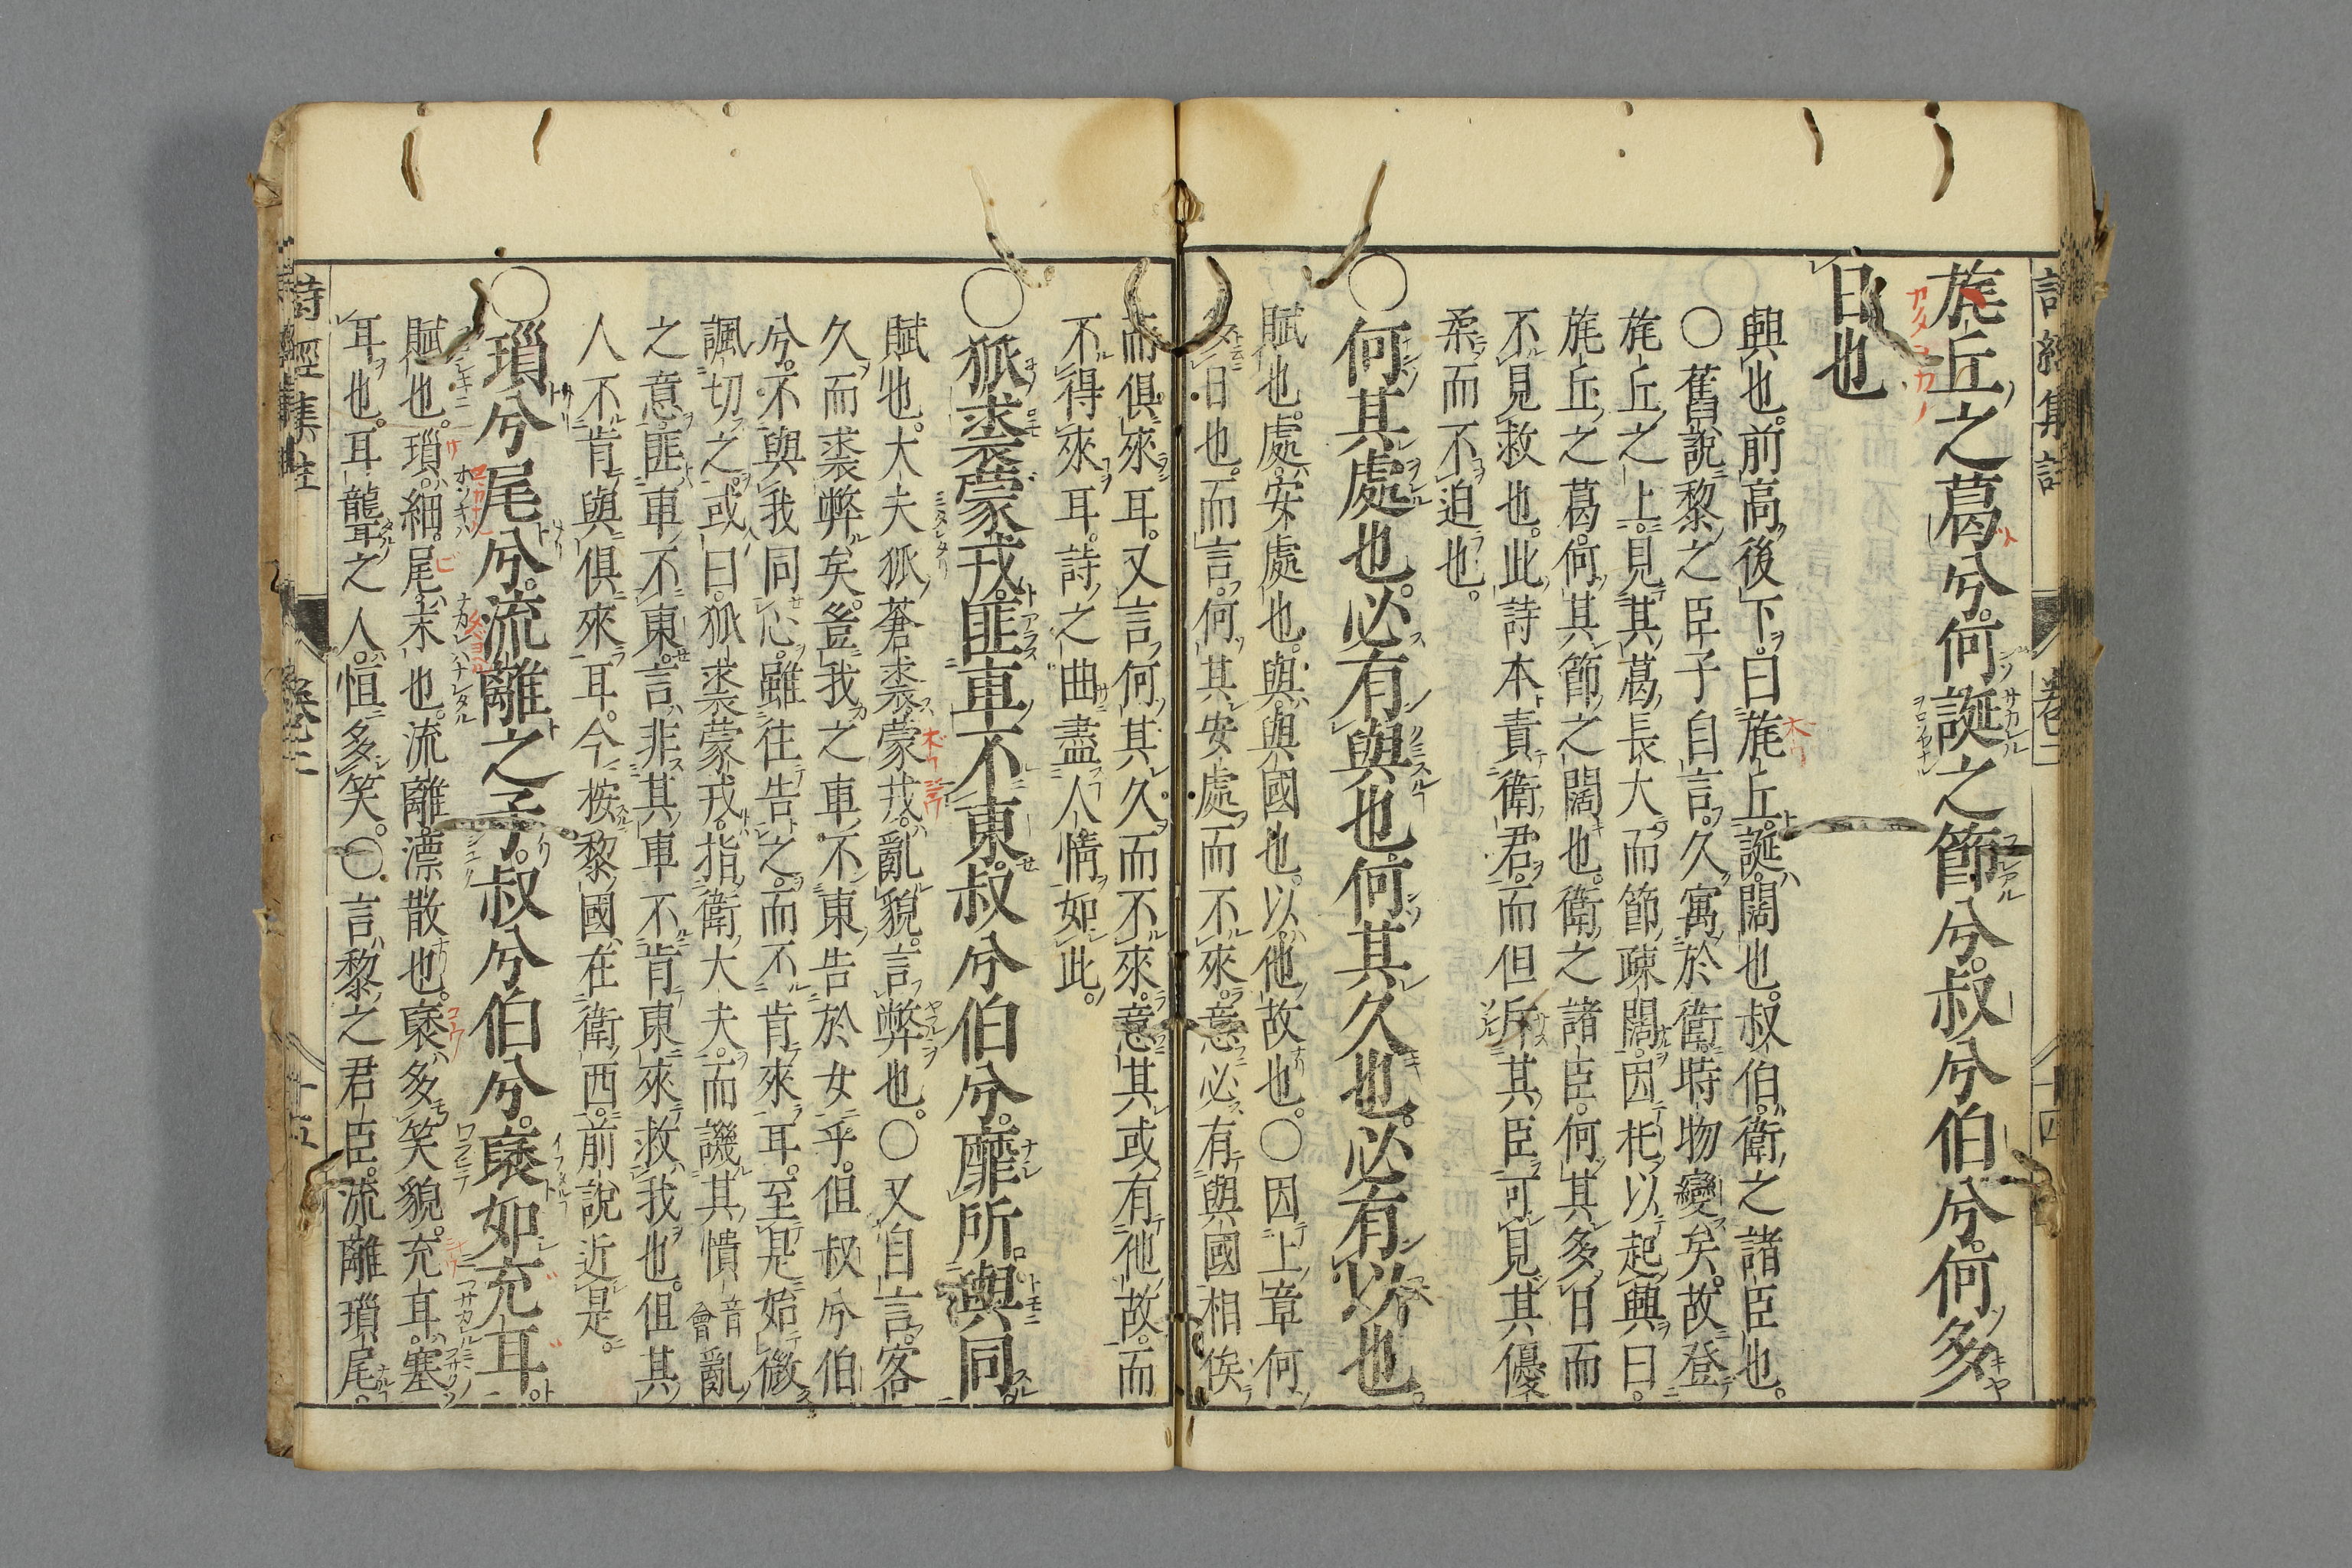 詩經集註 卷二 十四
旄丘之葛兮。何誕之節兮。叔兮伯兮。何多
日也
興也。前高後下。曰旄丘。誕。闊也。叔伯。衛之諸臣也。
○舊說黎之臣子自言。久寓於衛。時物變矣。故登
旄丘之上。見其葛長大而節疎闊。因托以起興曰。
旄丘之葛。何其節之闊也。衛之諸臣。何其多日而
不見救也。此詩本責衛君。而但斥其臣。可見其優
柔而不迫也。
○何其處也。必有與也。何其久也。必有以也。
賦也。處。安處也。與。與國也。以。他故也。○因上章何
多日也。而言。何其安處而不來。意必有與國相俟
而俱來耳。又言何其久而不來。意其或有他故。而
不得來耳。詩之曲盡人情如此。
○狐裘蒙戎。匪車不東。叔兮伯兮。靡所與同。
賦也。大夫狐蒼裘。蒙戎。亂貌。言弊也。○又自言。客
久而裘弊矣。豈我之車不東告於女乎。但叔兮伯
兮。不與我同心。雖往告之。而不肯來耳。至是始微
諷切之。或曰。狐裘蒙戎。指衛大夫。而譏其憒音會亂
之意。匪車不東。言非其車不肯東來救我也。但其
人不肯與俱來耳。今按黎國在衛西。前說近是。
○瑣兮尾兮。流離之子。叔兮伯兮。褎如充耳。
賦也。瑣。細。尾。末也。流離。漂散也。褎。多笑貌。充耳。塞
耳也。耳聾之人。恒多笑。○言黎之君臣。流離瑣尾。
詩經集註 卷二 十五